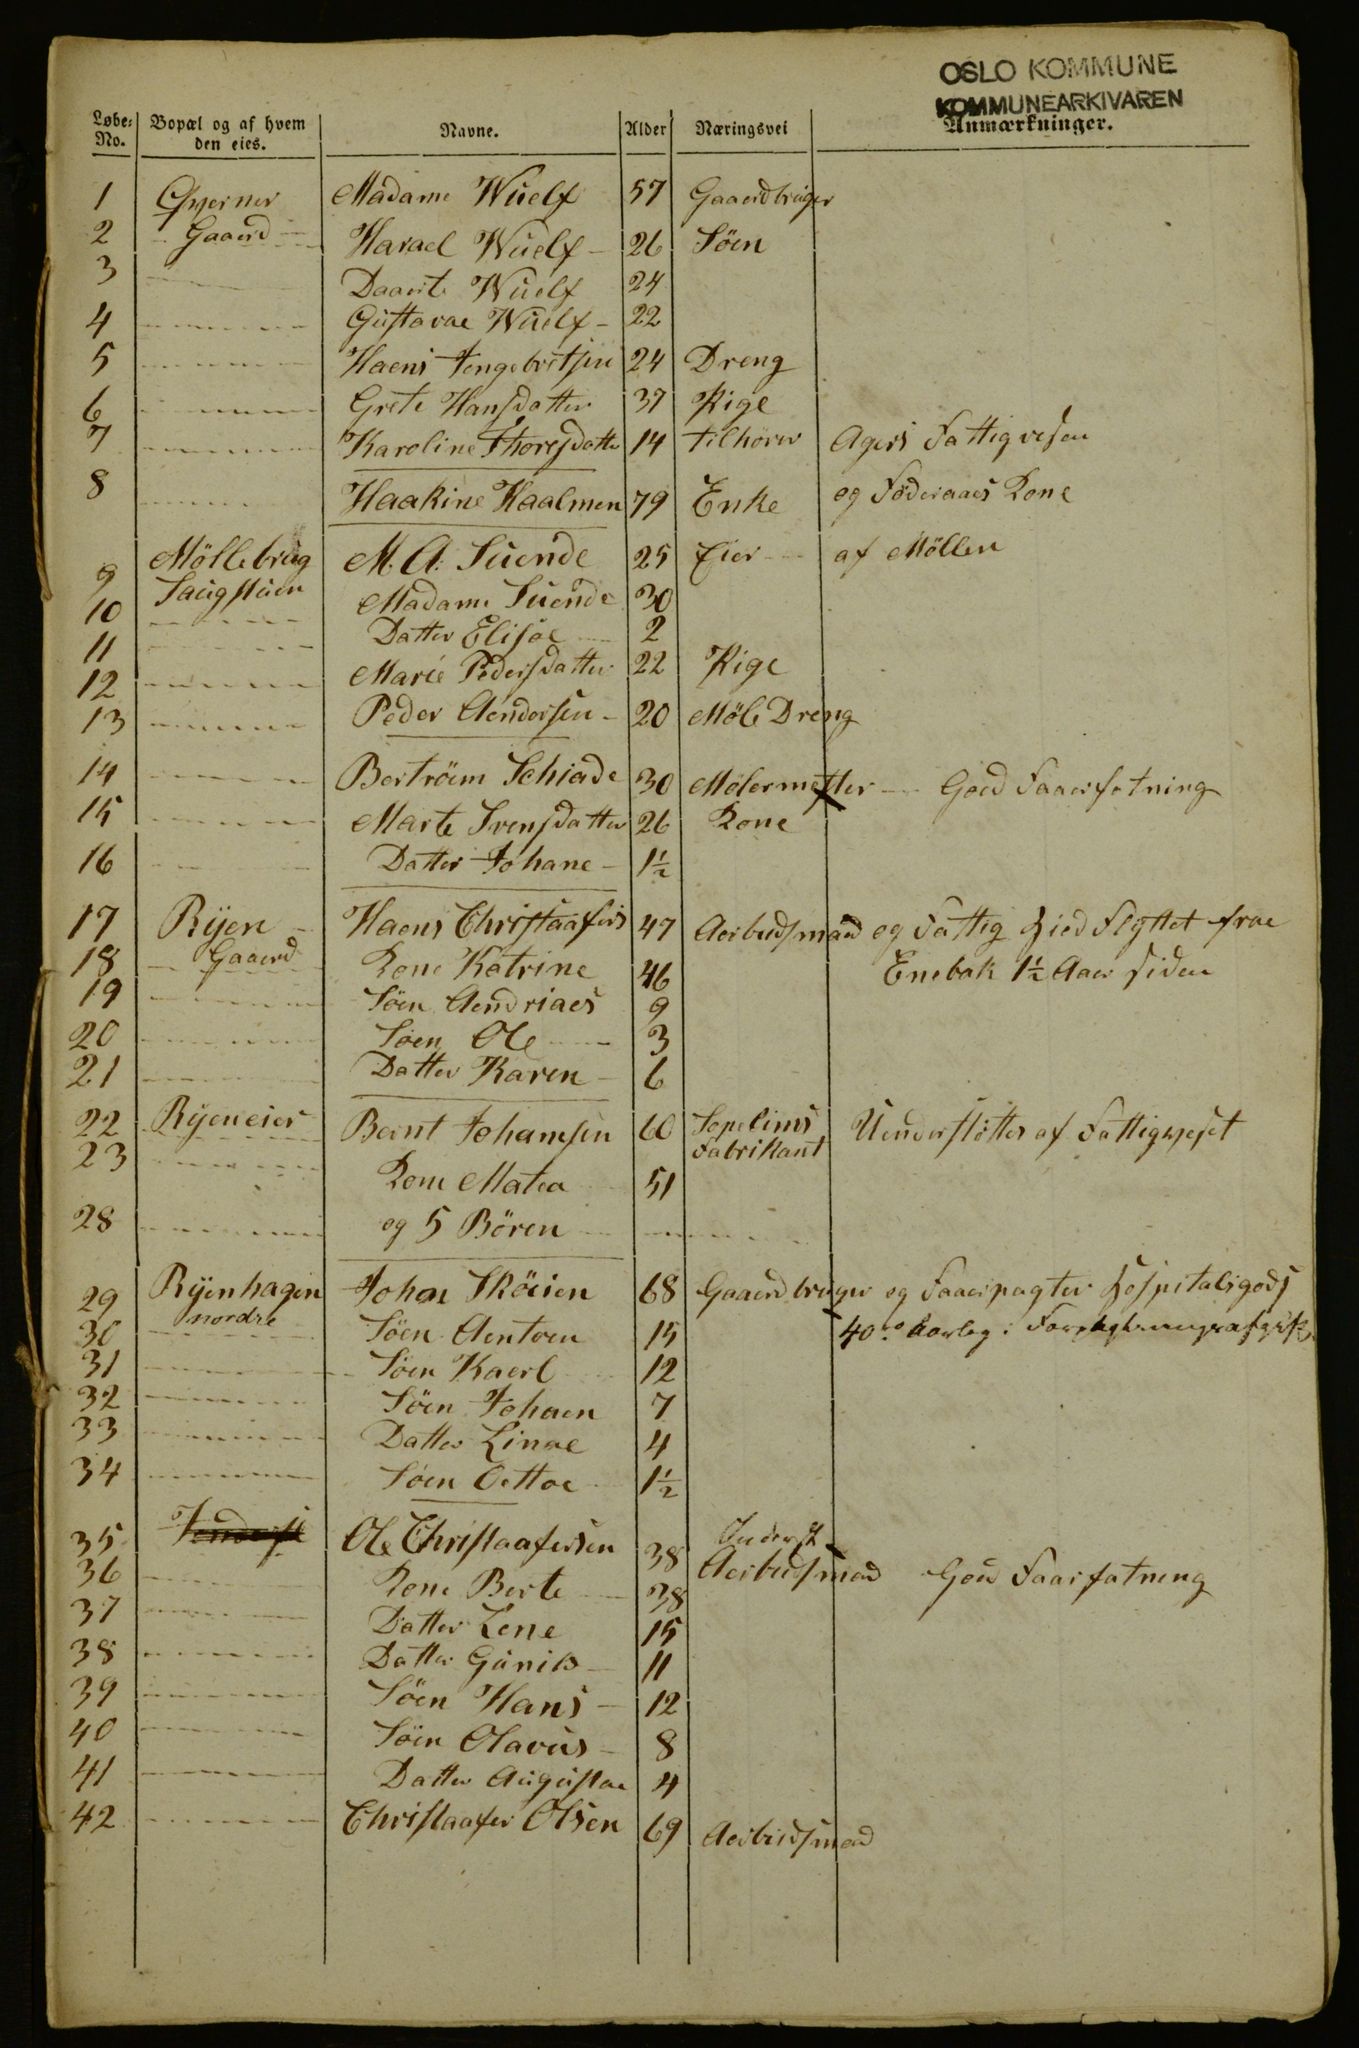 OSLO KOMMUNE
KOMMUNEARKIVAREN
Løbe-No. Bopæl og af hvem den eies. Navne. Alder Næringsvei Anmærkninger.
1 Qværner Madame Wuelf 57 Gaaerdbruger
2 Gaaerd Harael Wuelf 26 Söen
3 Daaerte Wuelf 24
4 Gustavae Wuelf 22
5 Haens Jengebretsen 24 Dreng
6 Grete Hansdatter 37 Pige
7 Karoline Thoresdatter 14 tilhörer Agers Fattigvesen
8 Haakine Haalmen 79 Enke og Föderaaes Kone
9 Möllebrug M. A. Suende 25 Eier af Möllen
10 Saugstuen Madame Suende 30
11 Datter Elisae 2
12 Marie Pedersdatter 22 Pige
13 Peder Aendersen 20 Möle Dreng
14 Bertröem Schiade 30 Mölermester Goed Faaerfatning
15 Marte Svensdatter 26 Kone
16 Datter Johane 1½
17 Ryen Haens Christaafers 47 Aerbeidsmaed og Fattig Hied Flyttet frae
18 Gaaerd Kone Katrine 46 Enebak 1½ Aaer siden
19 Söen Aendriaes 9
20 Söen Ole 3
21 Datter Karen 6
22 Ryeneier Bernt Johansen 60 Sepelims Fabrikant Uenderstöttes af Fattigveset
23 Kone Matea 51
28 og 5 Bören
29 Ryenhagen Johan Sköien 68 Gaaerdbruger og Faaerpagter Hospitalsgods
30 nordre Söen Aentoen 15 40 aarleg i
31 Söen Kaerl 12
32 Söen Johaen 7
33 Datter Linae 4
34 Söen Oettoe 1½
35 Jenderst Ole Christaafersen 38 Inderst Aerbeidsmaed Goed Faaerfatneng
36 Kone Berte 38
37 Datter Lene 15
38 Datter Gunild 11
39 Söen Hans 12
40 Söen Olavus 8
41 Datter Augustae 4
42 Christaafer Olsen 69 Aerbeidsmaed